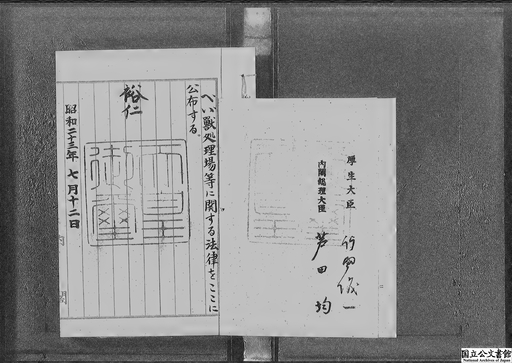 へい獣処理場等に関する法律をここに
公布する。
裕仁
天皇
御璽
昭和二十三年七月十二日
厚生大臣
竹田儀一
内閣総理大臣
芦田均
国立公文書館
National Archives of Japan